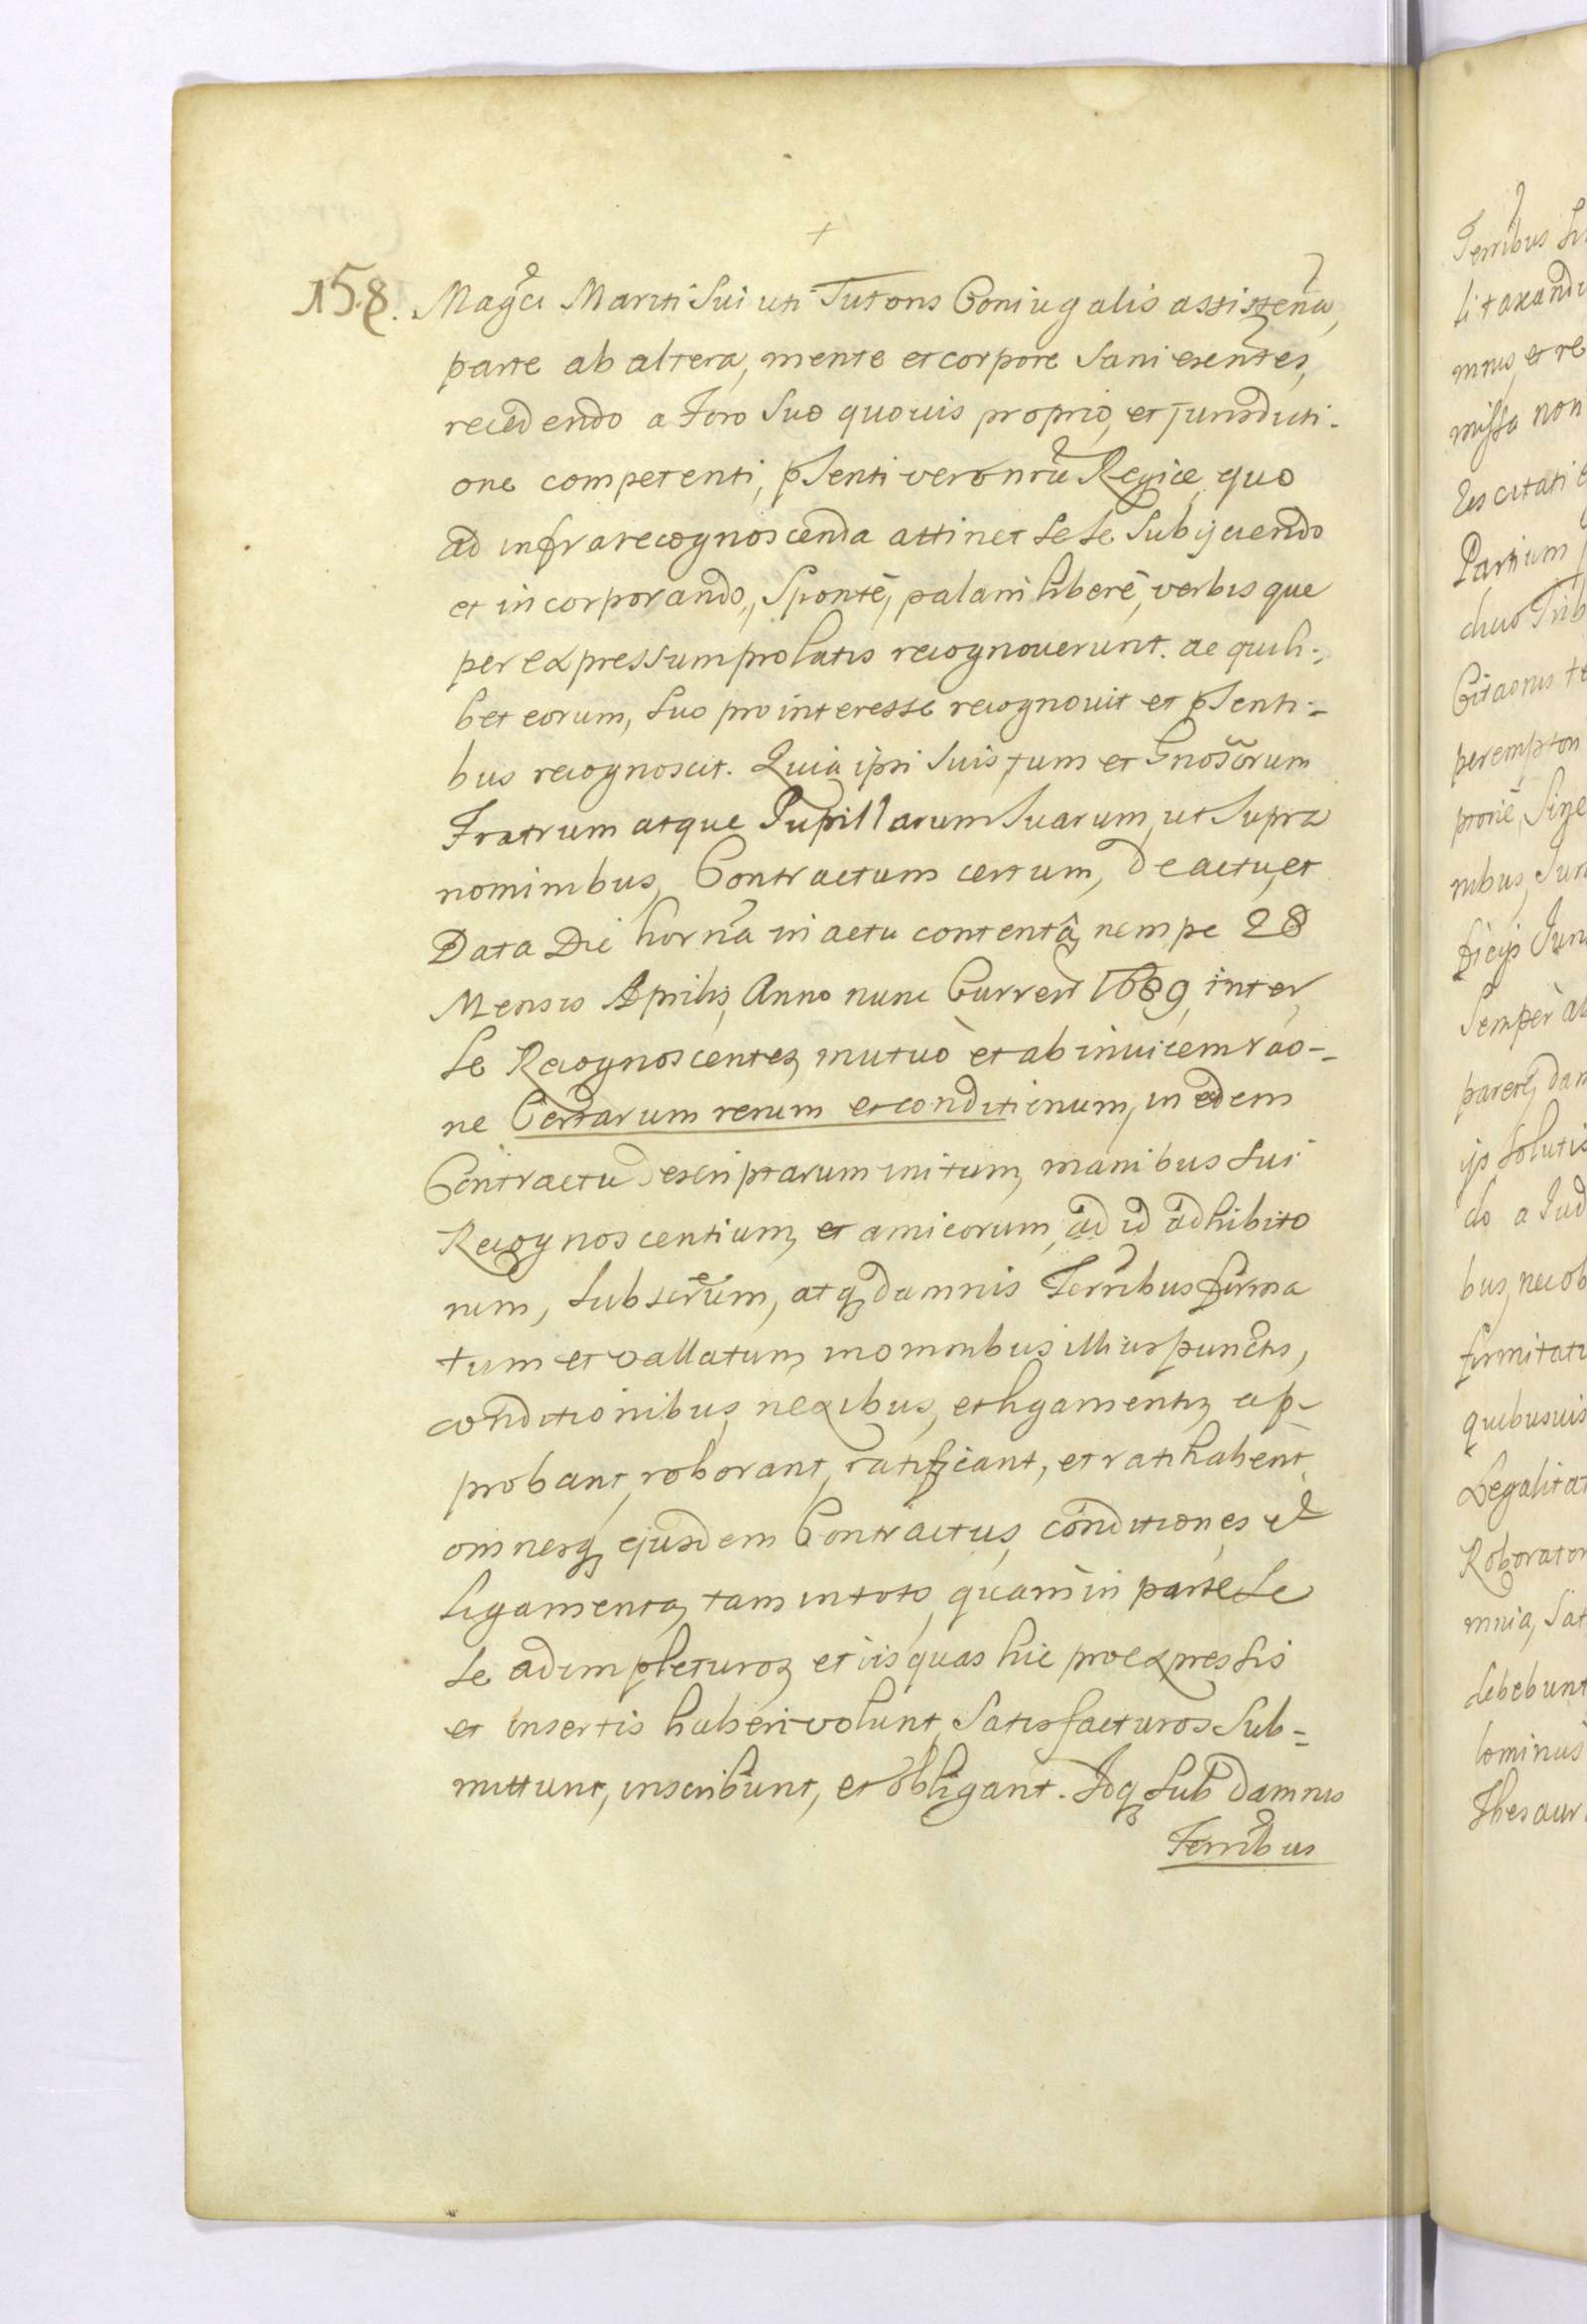 158. Magci Mariti Sui uti Tutoris Coniugalis assistena,
parte ab altera, mente et corpore Sani exentes,
recedendo a Foro Suo quovis proprio, et jurisdicti-
one competenti, pSenti vero nrae Regiae, quo
ad infra recognoscenda attinet Sese Subijciendo
et incorporando, Sponte, palam libere, verbisque
per expressum prolatis recognoverunt. ac quili-
bet eorum, Suo pro interesse recognovit et pSenti-
bus recognoscit. Quia ipsi Suis, tum et Gnosorum
Fratrum atque Pupillarum Suarum, ut Supra
nominibus, Contractum certum, de actu, et
Data Die horna in actu contentâ, nempe 28
Mensis Aprilis, Anno nunc Curren 1689, inter
Se Recognoscentes, mutuò et ab invicem rao-
ne Certarum rerum et conditionum, in eodem
Contractu descriptarum initum, manibus Sui
Recognoscentium, et amicorum, ad id adhibito
rum, Subscrum, atq damnis Terribus firma
tum et vallatum, in omnibus illius punctis,
conditionibus, nexibus, et ligamentis, ap-
probant, roborant, ratificant, et ratihabent
omnesq ejusdem Contractus, conditiones et
Ligamenta, tam in toto, quam in parte Se
Se adimpleturos, et iis quas hic pro expressis
et insertis haberi volunt, Satisfacturos Sub-
mittunt, inscribunt, et obligant. Idq Sub Damnis
Terribus
Terribus
li taxandi
mnis, et re
missa non
Partium
perempton
Semper
firmitati
quibusvis
Legalitat
Roborator
mnia, Sat
debebunt
Thesaur